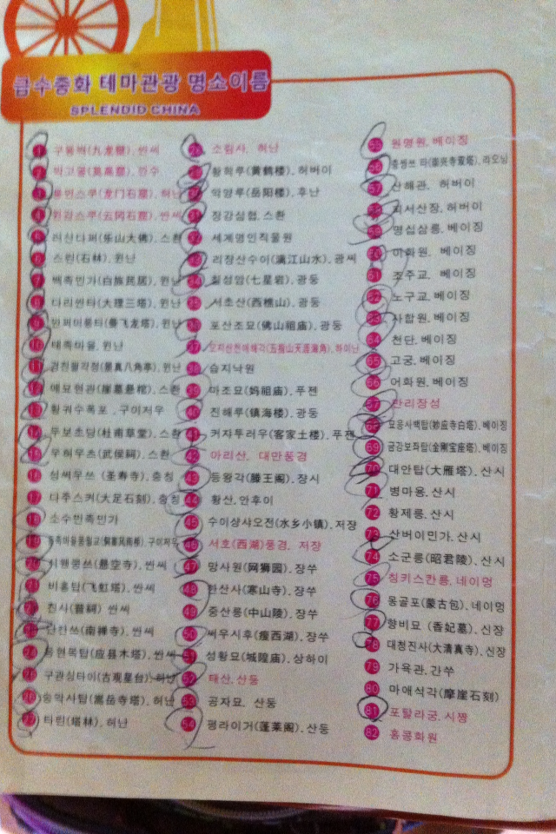 금수중화 테마관광 명소이름
SPLENDID CHINA
1 구룡벽(九龙壁), 싼씨
2 막고굴(莫高窟), 깐수
3 룽먼스쿠(龙门石窟), 허난
4 윈강스쿠(云冈石窟), 싼씨
5 러산다퍼(乐山大佛), 스촨
6 스린(石林), 윈난
7 백족민가(白族民居), 윈난
8 다리싼타(大理三塔), 윈난
9 만퍼이룽타(曼飞龙塔), 윈난
10 태족마을, 윈난
11 경진팔각정(景真八角亭), 윈난
12 애묘현관(崖墓悬棺), 스촨
13 황궈수폭포, 구이저우
14 두보초당(杜甫草堂), 스촨
15 우허우츠(武侯祠), 스촨
16 성써우쓰 (圣寿寺), 충칭
17 다주스커(大足石刻), 충칭
18 소수민족민가
19 구이저우
20 시웬쿵쓰(悬空寺), 싼씨
21 비홍탑(飞虹塔), 싼씨
22 진사(晋祠) 싼씨
23 난찬쓰(南禅寺), 싼씨
24 응현목탑(应县木塔), 싼씨
25 구관싱타이(古观星台), 허난
26 숭악사탑(嵩岳寺塔), 허난
27 타린(塔林), 허난
28 소림사, 허난
29 황학루(黄鹤楼), 허버이
30 악양루(岳阳楼), 후난
31 장강삼협, 스촨
32 세계명인직물원
33 리쟝산수이(漓江山水), 광씨
34 칠성암(七星岩), 광둥
35 서초산(西樵山), 광둥
36 포산조묘(佛山祖庙), 광둥
37 오지산천애해각(五指山天涯海角), 하이난
38 습지낙원
39 마조묘(妈祖庙), 푸젠
40 진해루(镇海楼), 광둥
41 커자투러우(客家土楼), 푸젠
42 아리산, 대만풍경
43 등왕각(滕王阁), 장시
44 황산, 안후이
45 수이샹샤오전(水乡小镇), 저장
46 서호(西湖)풍경, 저장
47 망사원(网狮园), 장쑤
48 한산사(寒山寺), 장쑤
49 중산릉(中山陵), 장쑤
50 써우시후(瘦西湖), 장쑤
51 성황묘(城隍庙), 상하이
52 태산, 산둥
53 공자묘, 산둥
54 펑라이거(蓬莱阁), 산둥
55 원명원, 베이징
56 랴오닝
57 산해관, 허버이
58 피서산장, 허버이
59 명십삼릉, 베이징
60 이화원, 베이징
61 조주교, 베이징
62 노구교, 베이징
63 사합원, 베이징
64 천단, 베이징
65 고궁, 베이징
66 어화원, 베이징
67 만리장성
68 묘응사백탑(妙应寺白塔), 베이징
69 금강보좌탑(金刚宝座塔), 베이징
70 대안탑(大雁塔), 산시
71 병마용, 산시
72 황제릉, 산시
73 산버이민가, 산시
74 소군릉(昭君陵), 산시
75 칭키스칸릉, 네이멍
76 몽골포(蒙古包), 네이멍
77 향비묘 (香妃墓), 신장
78 대청진사(大清真寺), 신장
79 가욕관, 간쑤
80 마애석각(摩崖石刻)
81 포탈라궁, 시짱
82 홍콩화원